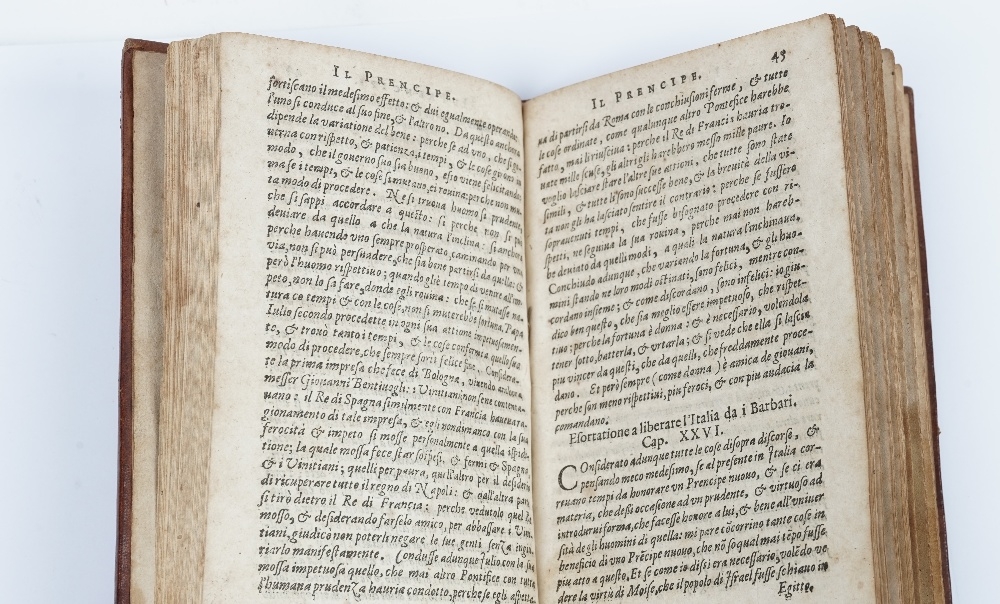 IL PRENCIPE.
sortiscano il medesimo effetto: & dui egualmente operando,
l'uno si conduce al suo fine, & l'altro no. Da questo anchora
dipende la variatione del bene: perche se ad vno, che si go-
uerna con rispetto, & patienza, i tempi, & le cose girono in
modo, che il gouerno suo sia buono, esso viene felicitando:
ma se i tempi, & le cose si mutano, ei rouina: perche non mu-
ta modo di procedere. Ne si truoua huomo si prudente,
che si sappi accordare a questo: si perche non si può
deuiare da quello a che la natura l'inclina: si anchora
perche hauendo vno sempre prosperato, caminando per vna
via, non si può persuadere, che sia bene partirsi da quella: &
però l'huomo rispettiuo; quando gliè tempo di venire all'im-
peto, non lo sa fare, donde egli rouina: che se si mutasse na-
tura co tempi & con le cose, non si muterebbe fortuna. Papa
Iulio secondo procedette in ogni sua attione impetuosamen-
te, & trouò tanto i tempi, & le cose conforme a quello suo
modo di procedere, che sempre sortì felice fine. Considera-
te la prima impresa che fece di Bologna, viuendo anchora
messer Giouanni Bentiuogli: i Vinitiani non sene contenta-
uano: il Re di Spagna similmente con Francia haueua ra-
gionamento di tale impresa, & egli nondimanco con la sua
ferocità & impeto si mosse personalmente a quella ispedi-
tione; la quale mossa fece star sospesi, & fermi & Spagna
& i Vinitiani; quelli per paura, quell'altro per il desiderio
di ricuperare tutto il regno di Napoli: & dall'altra parte
si tirò dietro il Re di Francia: perche vedutolo quel Re
mosso, & desiderando farselo amico, per abbassare i Vini-
tiani, giudicò non poterli negare le sue genti senza ingiu-
riarlo manifestamente. Condusse adunque Iulio con la sua
mossa impetuosa quello, che mai altro Pontifice con tutta
l'humana prudenza hauria condotto, perche se egli aspetta-
IL PRENCIPE. 43
ua di partirsi da Roma con le conchiusioni ferme, & tutte
le cose ordinate, come qualunque altro Pontefice harebbe
fatto, mai li riusciua: perche il Re di Francia hauria tro-
uate mille scuse, gli altri gli harebbero messo mille paure. Io
voglio lasciare stare l'altre sue attioni, che tutte sono state
simili, & tutte li sono successe bene, & la breuità della vi-
ta non gli ha lasciato sentire il contrario: perche se fussero
sopravenuti tempi, che fusse bisognato procedere con ri-
spetti, ne seguiua la sua rouina, perche mai non hareb-
be deuiato da quelli modi, a quali la natura l'inchinaua.
Conchiudo adunque, che variando la fortuna, & gli huo-
mini stando ne loro modi ostinati, sono felici, mentre con-
cordano insieme; & come discordano, sono infelici: io giu-
dico ben questo, che sia meglio essere impetuoso, che rispet-
tiuo; perche la fortuna è donna: & è necessario, volendola
tener sotto, batterla, & vrtarla; & si vede che ella si lascia
piu vincer da questi, che da quelli, che freddamente proce-
dano. Et però sempre (come donna) è amica de giouani,
perche son meno rispettiui, piu feroci, & con piu audacia la
comandano.
Essortatione a liberare l'Italia da i Barbari.
Cap. XXVI.
COnsiderato adunque tutte le cose disopra discorse, &
pensando meco medesimo, se al presente in Italia cor-
reuano tempi da honorare vn Prencipe nuouo, & se ci era
materia, che dessi occasione ad vn prudente, & virtuoso ad
introdurui forma, che facesse honore a lui, & bene all'vniuer
sità de gli huomini di quella: mi pare cõcorrino tante cose in
beneficio di vno Prẽcipe nuouo, che nõ so qual mai tẽpo fusse
piu atto a questo, Et se come io dissi era necessario, volẽdo ve
dere la virtù di Moise, che il popolo di Israel fusse schiauo in
Egitto,